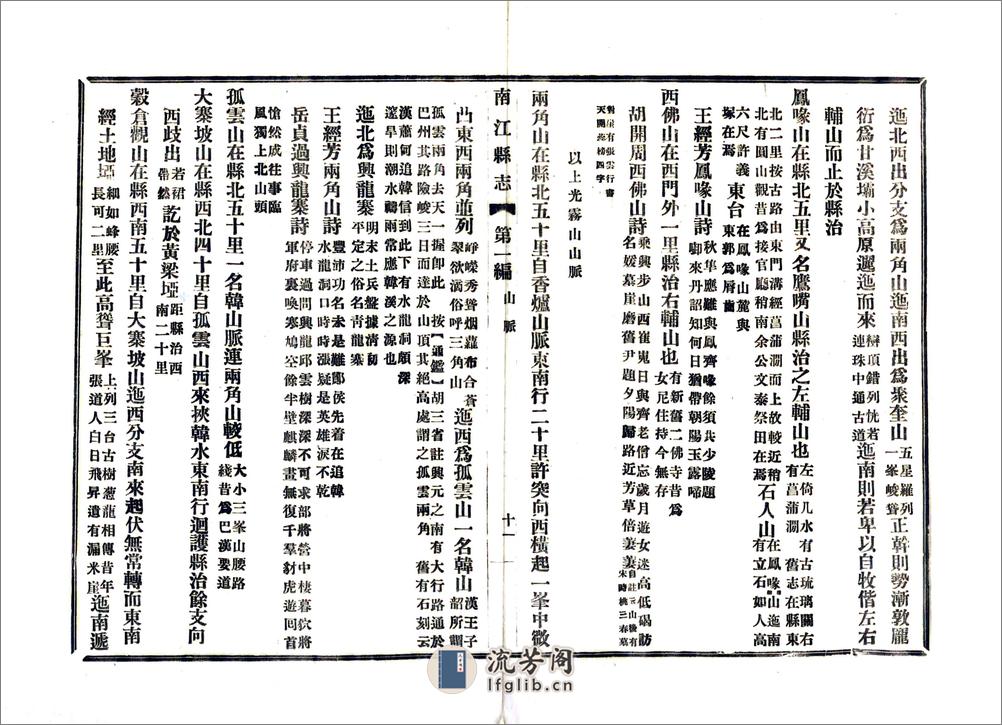 迤北西出分支爲兩角山迤南西出爲聚奎山五星羅列一峯峻聳正幹則勢漸敦龐
衍爲甘溪壩小高原邐迤而來辮頂錯列恍若連珠中通古道迤南則若卑以自牧偕左右
輔山而止於縣治
鳳喙山在縣北五里又名鷹嘴山縣治之左輔山也左倚几水有古琉璃關右有菖蒲澗舊志在縣東
北二里按古路由東門溝經菖蒲澗而上故較近稍北有圓山觀昔爲接官廳稍南余公文泰祭田在焉石人山在鳳喙山迤南有立石如人高
六尺許義塚在焉東台在鳳喙山麓與東郭爲脣齒
王經芳鳳喙山詩秋隼應難與鳳齊喙餘須共少陵題啣來丹詔知何日猶帶朝陽玉露啼
西佛山在西門外一里縣治右輔山也有新舊二佛寺昔爲女尼住持今無存
胡開周西佛山詩乘興步山西崔嵬日與齊老僧忘歲月遊女迷高低碣訪名媛墓崖磨舊尹題夕陽歸路近芳草倍萋萋
對崖有張雲行書天開 榜四字
以上光霧山山脈
兩角山在縣北五十里自香爐山脈東南行二十里許突向西橫起一峯中微
南江縣志 第一編 山脈 十一
凸東西兩角並列崢嶸秀聳烟蘿布合蒼翠欲滴俗呼三角山迤西爲孤雲山一名韓山漢王子韶所謂
孤雲兩角去天一握卽此按【通鑑】胡三省註興元之南有大行路通於巴州其路險峻三日而達於山頂其絕高處謂之孤雲兩角舊有石刻云
漢蕭何追韓信到此下有水龍洞頗深邃旱則潮水禱雨常應韓溪之源也
迤北爲興龍寨明末土兵盤據清初平定之俗名青龍寨
王經芳兩角山詩豐沛功名未是難鄼侯先着在追韓水龍洞口時時漲疑是英雄淚不乾
岳貞過興龍寨詩停車過問興龍邱雲樹深深不可求部將營中棲暮狄將軍府裏喚寒鳩空餘半壁麒麟畫無復千羣豺虎遊回首
愴然成往事臨風獨上北山頭
孤雲山在縣北五十里一名韓山脈連兩角山較低大小三峯山腰路綫昔爲巴漢要道
大寨坡山在縣西北四十里自孤雲山西來挾韓水東南行迴護縣治餘支向
西歧出若裙帶然訖於黃梁埡距縣治西南二十里
穀倉觀山在縣西南五十里自大寨坡山迤西分支南來起伏無常轉而東南
經土地埡細如蜂腰長可二里至此高聳巨峯上列三台古樹蔥蘢相傳昔年張道人白日飛昇遺有漏米崖迤南遞
流芳阁
lfglib.cn